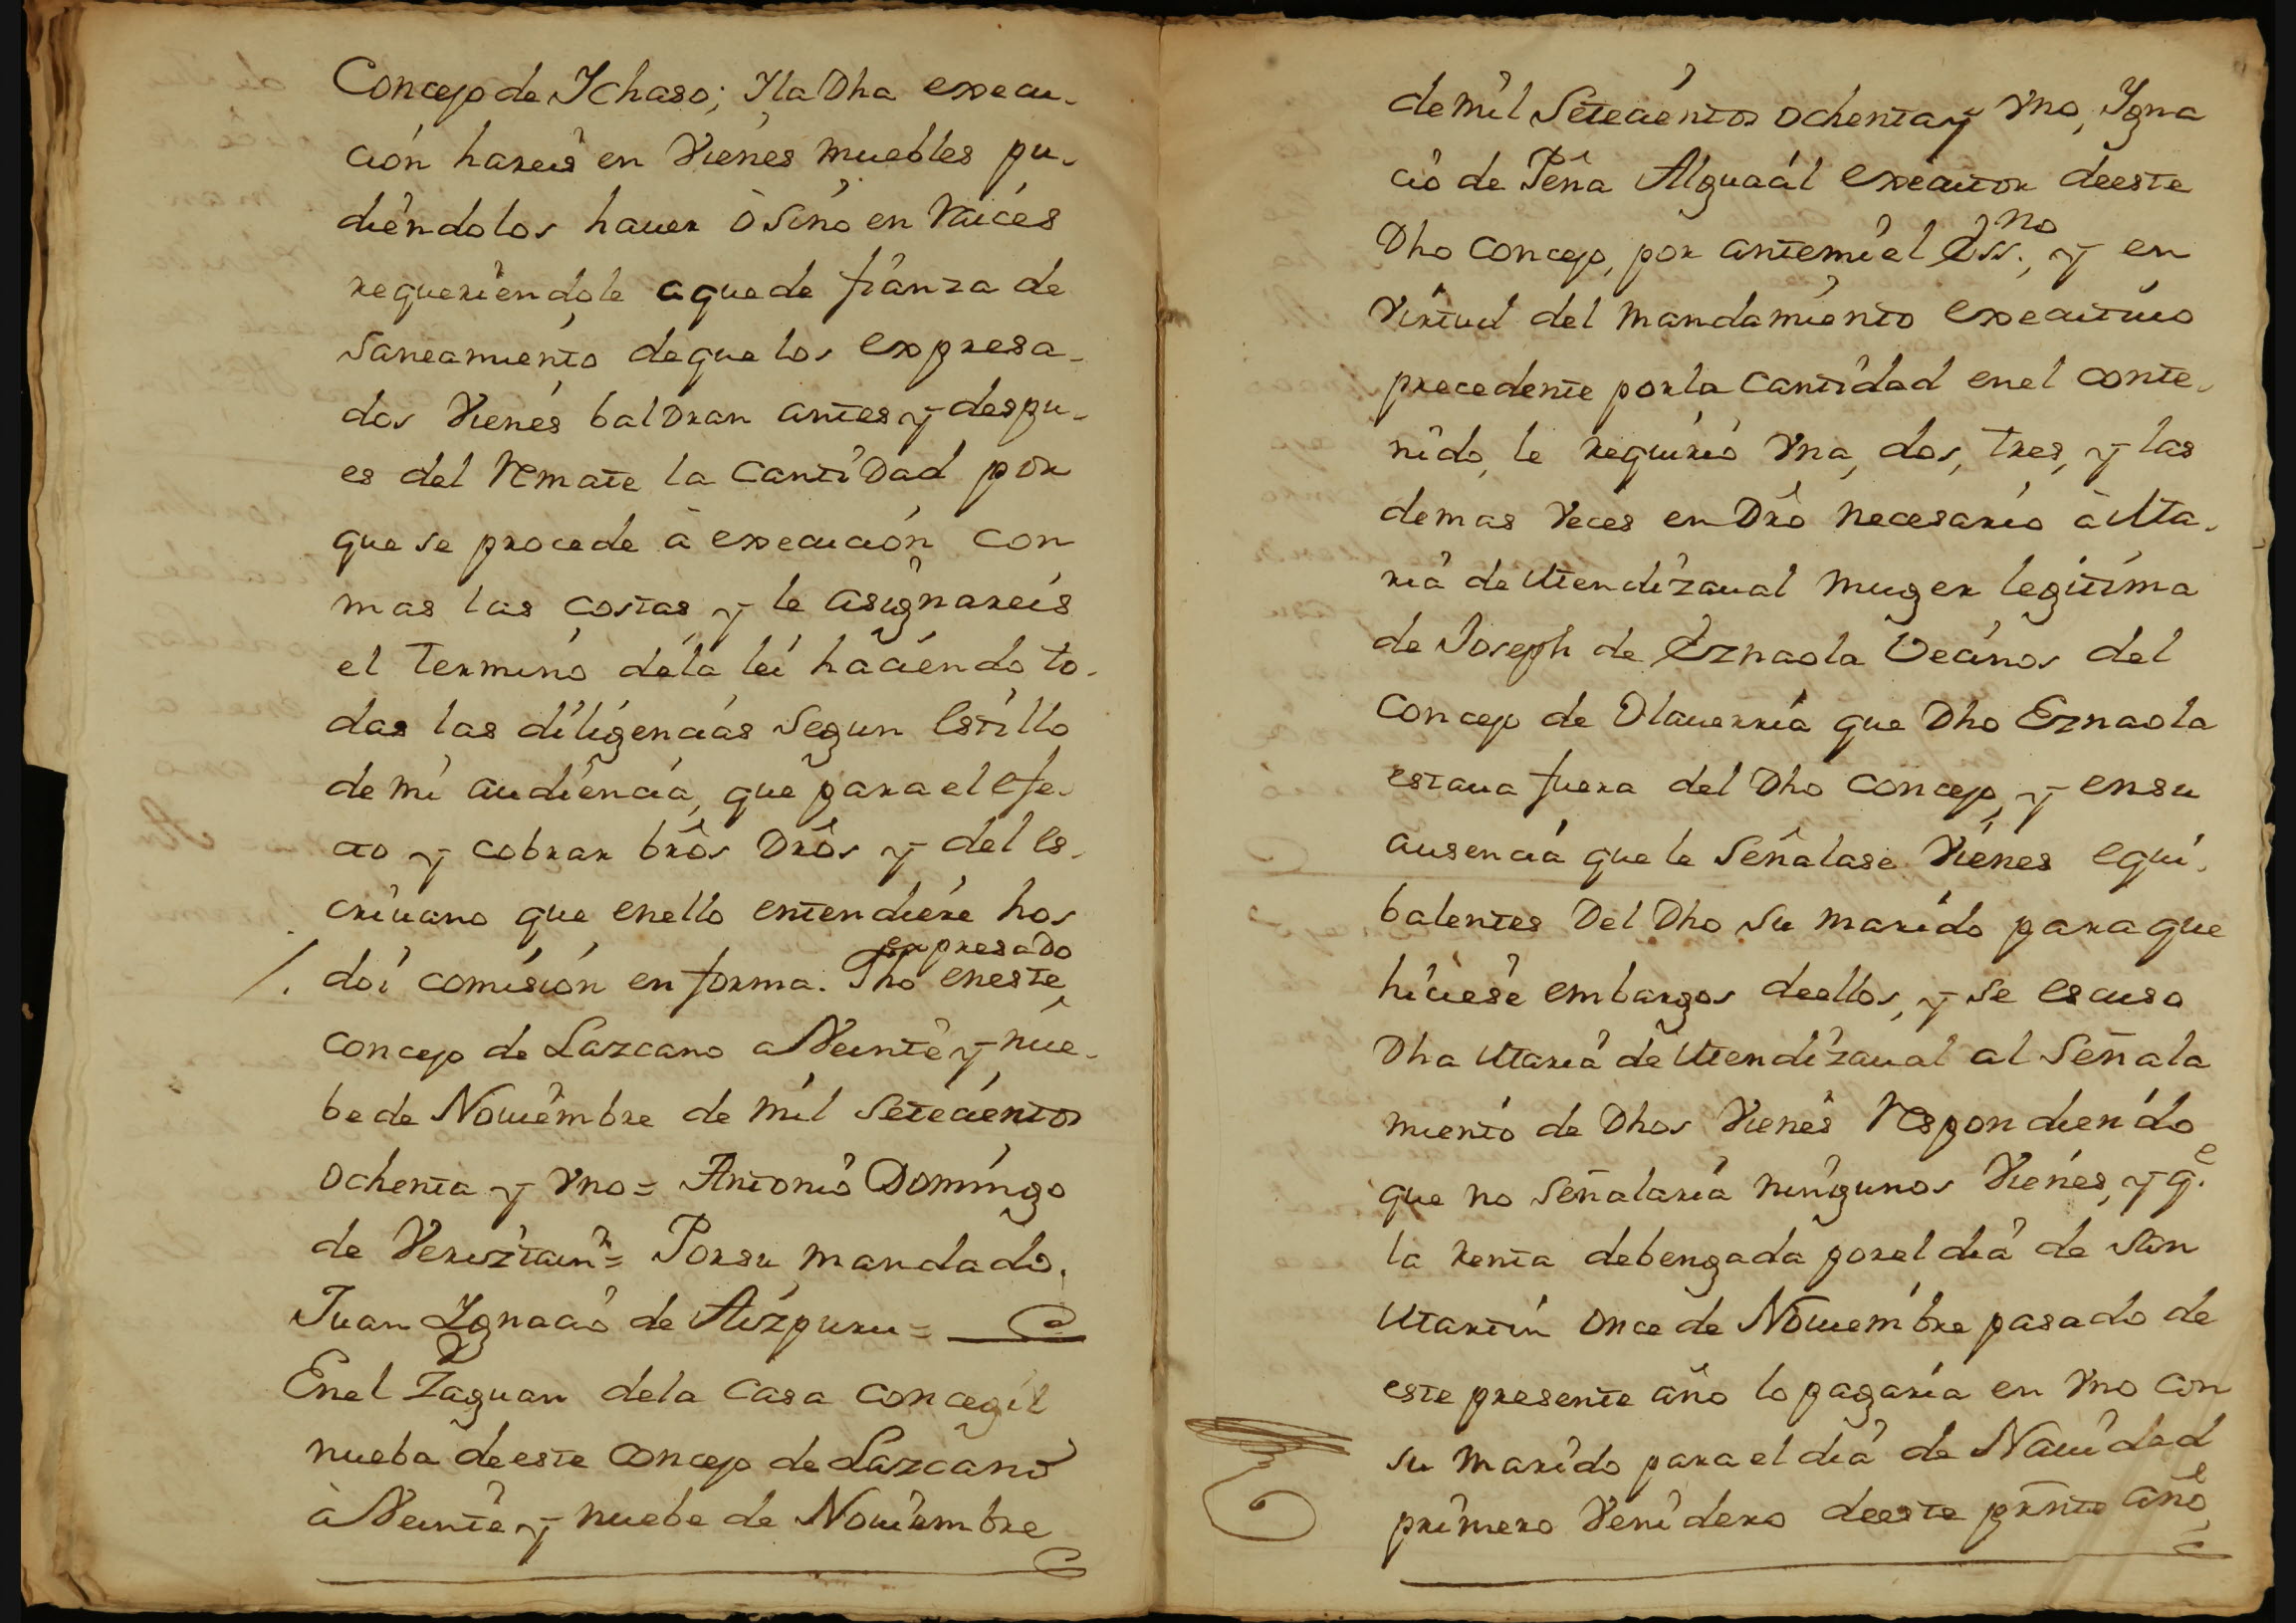 Concejo de Ychaso; Yla Dha execu-
ción hareis en Vienes muebles pu-
diendolos hauer ò sino en Raices
requeriendole a que de fianza de
saneamiento de que los expresa-
dos Vienes baldran antes y despu-
es del Remate la cantidad por
que se procede à execución con
mas las costas y le asignareis
el termino dela lei haciendo to-
das las diligencias segun estillo
de mi audiencia, que para el efe-
cto y cobrar brôs Drôs y del es-
criuano que enello entendiere hos
expresado
/. doi comisión en forma. Fho eneste
Concejo de Lazcano a Veinte y nue-
be de Nouiembre de mil setecientos
ochenta y Vno = Antonio Domingo
de Veriztain = Porsu mandado.
Juan Ygnacio de Aizpuru =
Enel Zaguan dela Casa concegil
nueba de este Concejo de Lazcano
à Veinte y nuebe de Nouiembre
de mil Setecientos ochenta y Vno, Ygna
cio de Peña Alguacil executor deeste
Dho Concejo, por antemi el Ess.no, y en
Virtud del mandamiento executiuo
precedente porla cantidad enel conte-
nido, le requirió Vna, dos, tres, y las
demas Veces en Drô necesario à Ma-
ria de Mendizaual muger legitima
de Joseph de Eznaola Vecinos del
Concejo de Olauerria que Dho Eznaola
estaua fuera del Dho Concejo, y ensu
ausencia que le señalase Vienes equi-
balentes Del Dho su marido paraque
hiciese embargos deellos, y se escuso
Dha Maria de Mendizaual al señala
miento de Dhos Vienes Respondiendo
que no señalaria ningunos Vienes, y q.e
la renta debengada porel dia de San
Martin once de Nouiembre pasado de
este presente año lo pagaria en Vno con
su marido para el dia de Nauidad
primero Venidero deeste prnte año